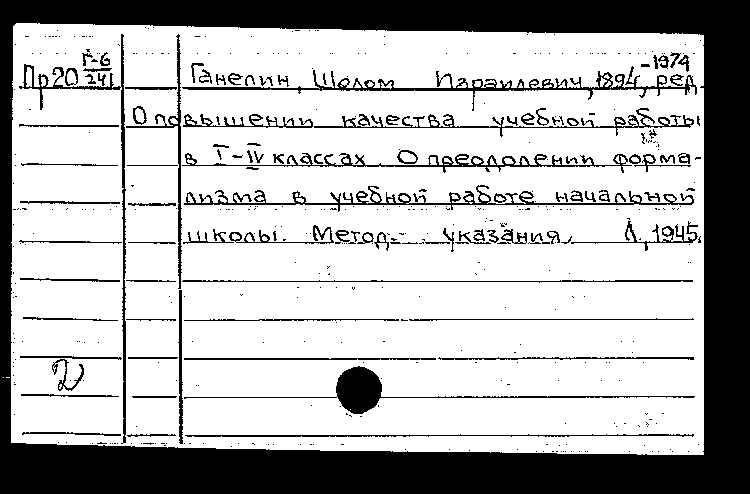 Пр20 Г-6/241
Ганелин, Шолом Израилевич, 1894-1974, ред.
О повышении качества учебной работы
в I-IV классах. О преодолении форма-
лизма в учебной работе начальной
школы. Метод. указания. Л., 1945.
2